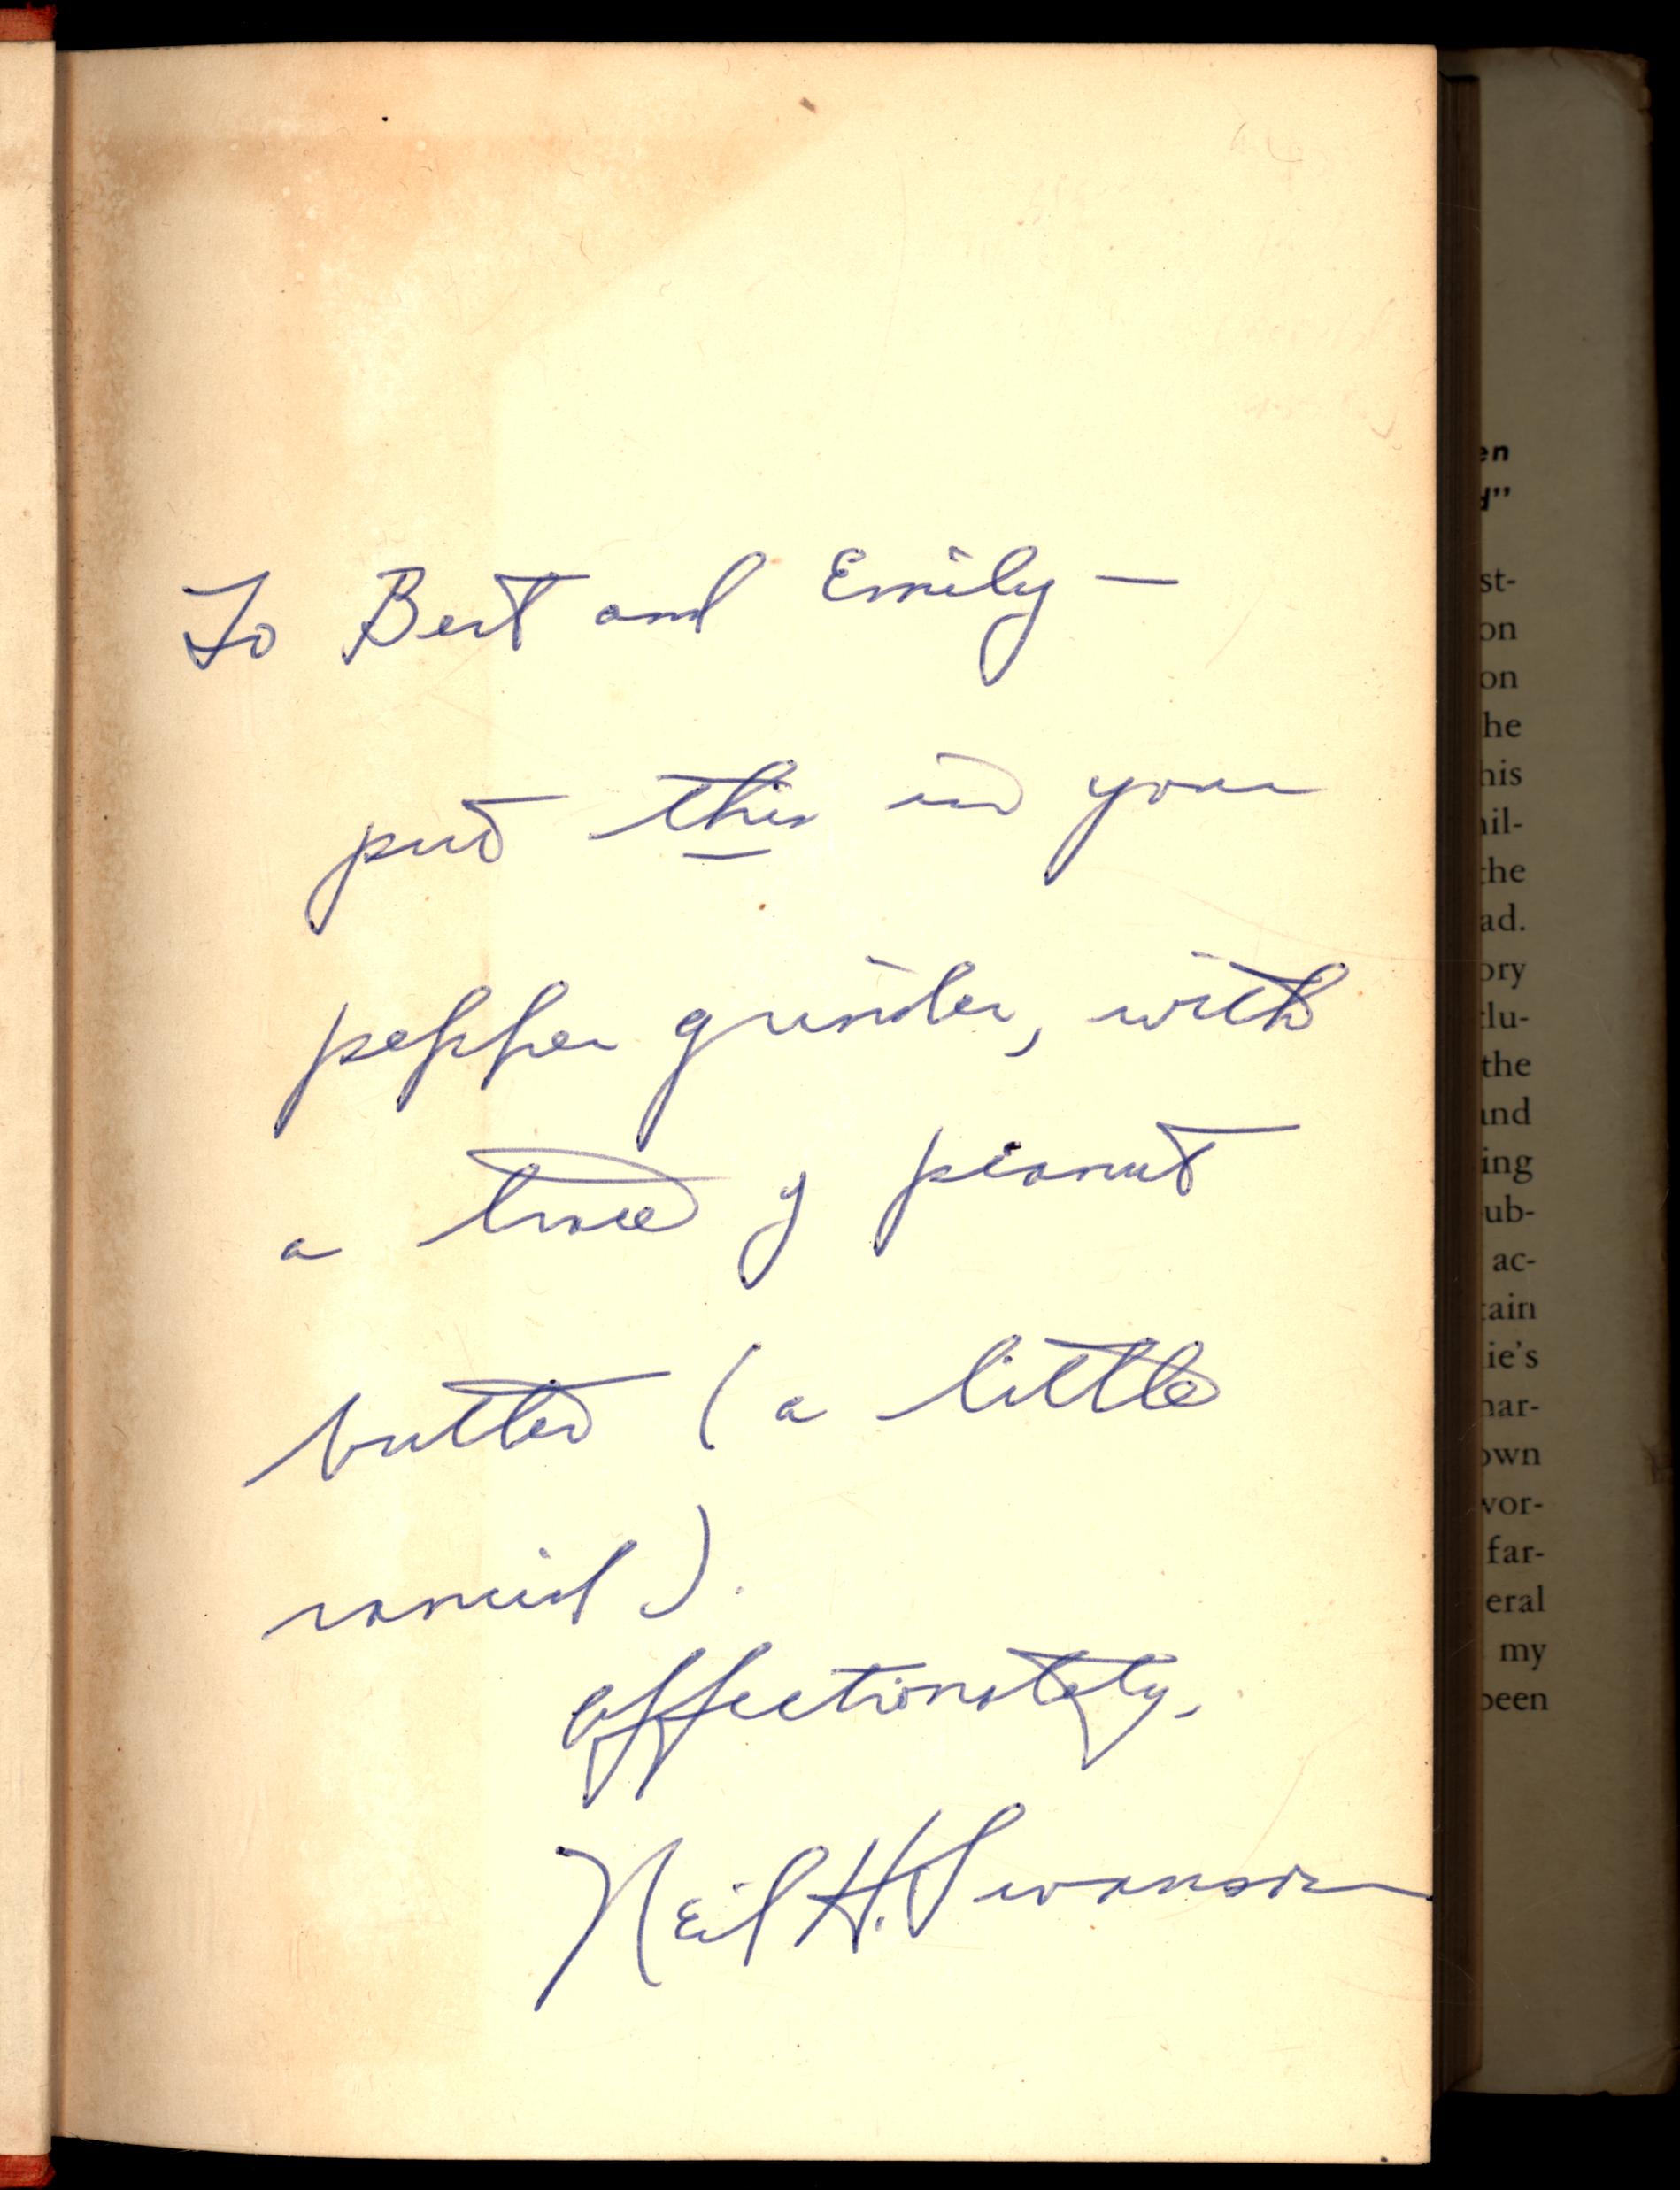 To Bert and Emily —
put this in your
pepper grinder, with
a trace of peanut
butter (a little
rancid).
affectionately,
Neil H. Swanson
en
d"
st-
on
on
he
his
nil-
the
ad.
ory
clu-
the
and
ing
ub-
ac-
tain
lie's
har-
own
wor-
far-
eral
my
been